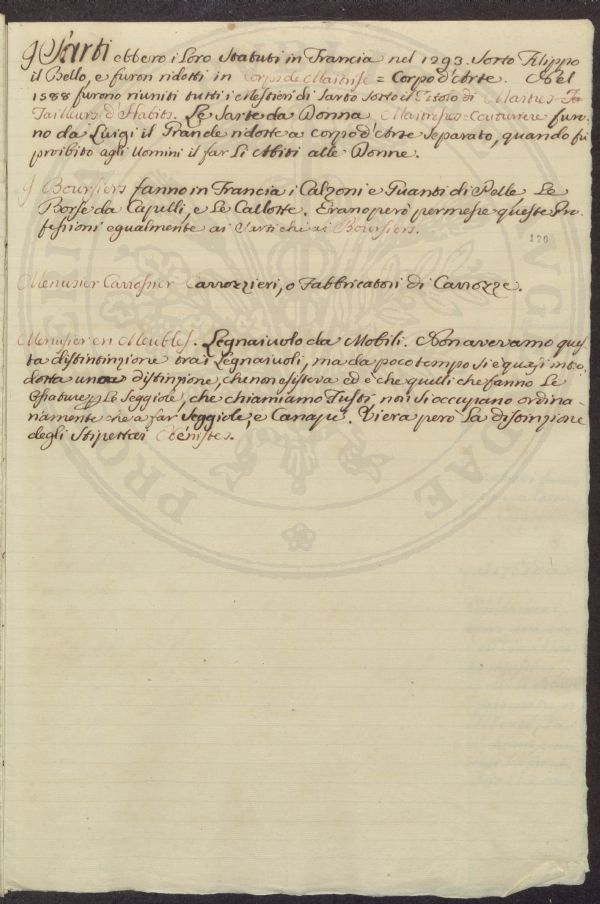 I Sarti ebbero i Loro Statuti in Francia nel 1293. Sotto Filippo
il Bello, e furon ridotti in Corps de Maitrise = Corpo d'Arte. Nel
1588 furono riuniti tutti i Mestieri di Sarto sotto il Titolo di Maitres-Ta
Tailleurs d'Habits. Le Sarte da Donna Maitresses-Couturiere furo-
no da Luigi il Grande ridotte a corpo d'Arte separato, quando fu
proibito agli Uomini il far Li Abiti alle Donne.
I Boursiers fanno in Francia i Calzoni e Guanti di Pelle Le
Borse da Capelli, e Le Callotte. Erano però permesse queste Pro-
fessioni egualmente ai Sarti che ai Boursiers.
170
Menusier Carrossier Carrozzieri, o Fabbricatori di Carrozze.
Menusier en Meubles. Legnaiuolo da Mobili. Non avevamo ques-
ta distintinzione tra i Legnaiuoli, ma da poco tempo si è quasi intro-
dotta una distinzione, che non esisteva ed è che quelli che fanno Le
Le Seggiole, che chiamiamo Fusti, non si occupano ordina-
riamente che a far Seggiole, e Canapè. Viera però La distinzione
degli Stipettai Ebénistes.
PRO
AUG
DAE